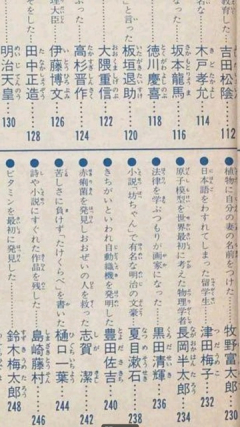 吉田松陰 112
木戸孝允 114
坂本龍馬 116
徳川慶喜 118
と言った 板垣退助 120
大隈重信 122
った 高杉晋作 124
理大臣 伊藤博文 126
をした 田中正造 128
明治天皇 130
●植物に自分の妻の名前をつけた 牧野富太郎 230
●日本語をわすれてしまった留学生 津田梅子 232
●原子模型を世界最初に考えた物理学者 長岡半太郎 234
●法律を学ぶつもりが画家になった 黒田清輝 236
●小説『坊ちゃん』で有名な明治の文豪 夏目漱石 238
●きちがいといわれ自動織機を発明した 豊田佐吉 240
●赤痢菌を発見しおおぜいの人を救った 志賀潔 242
●苦しさに負けず『たけくらべ』を書いた 樋口一葉 244
●詩や小説にすぐれた作品を残した 島崎藤村 246
●ビタミンを最初に発見した 鈴木梅太郎 248